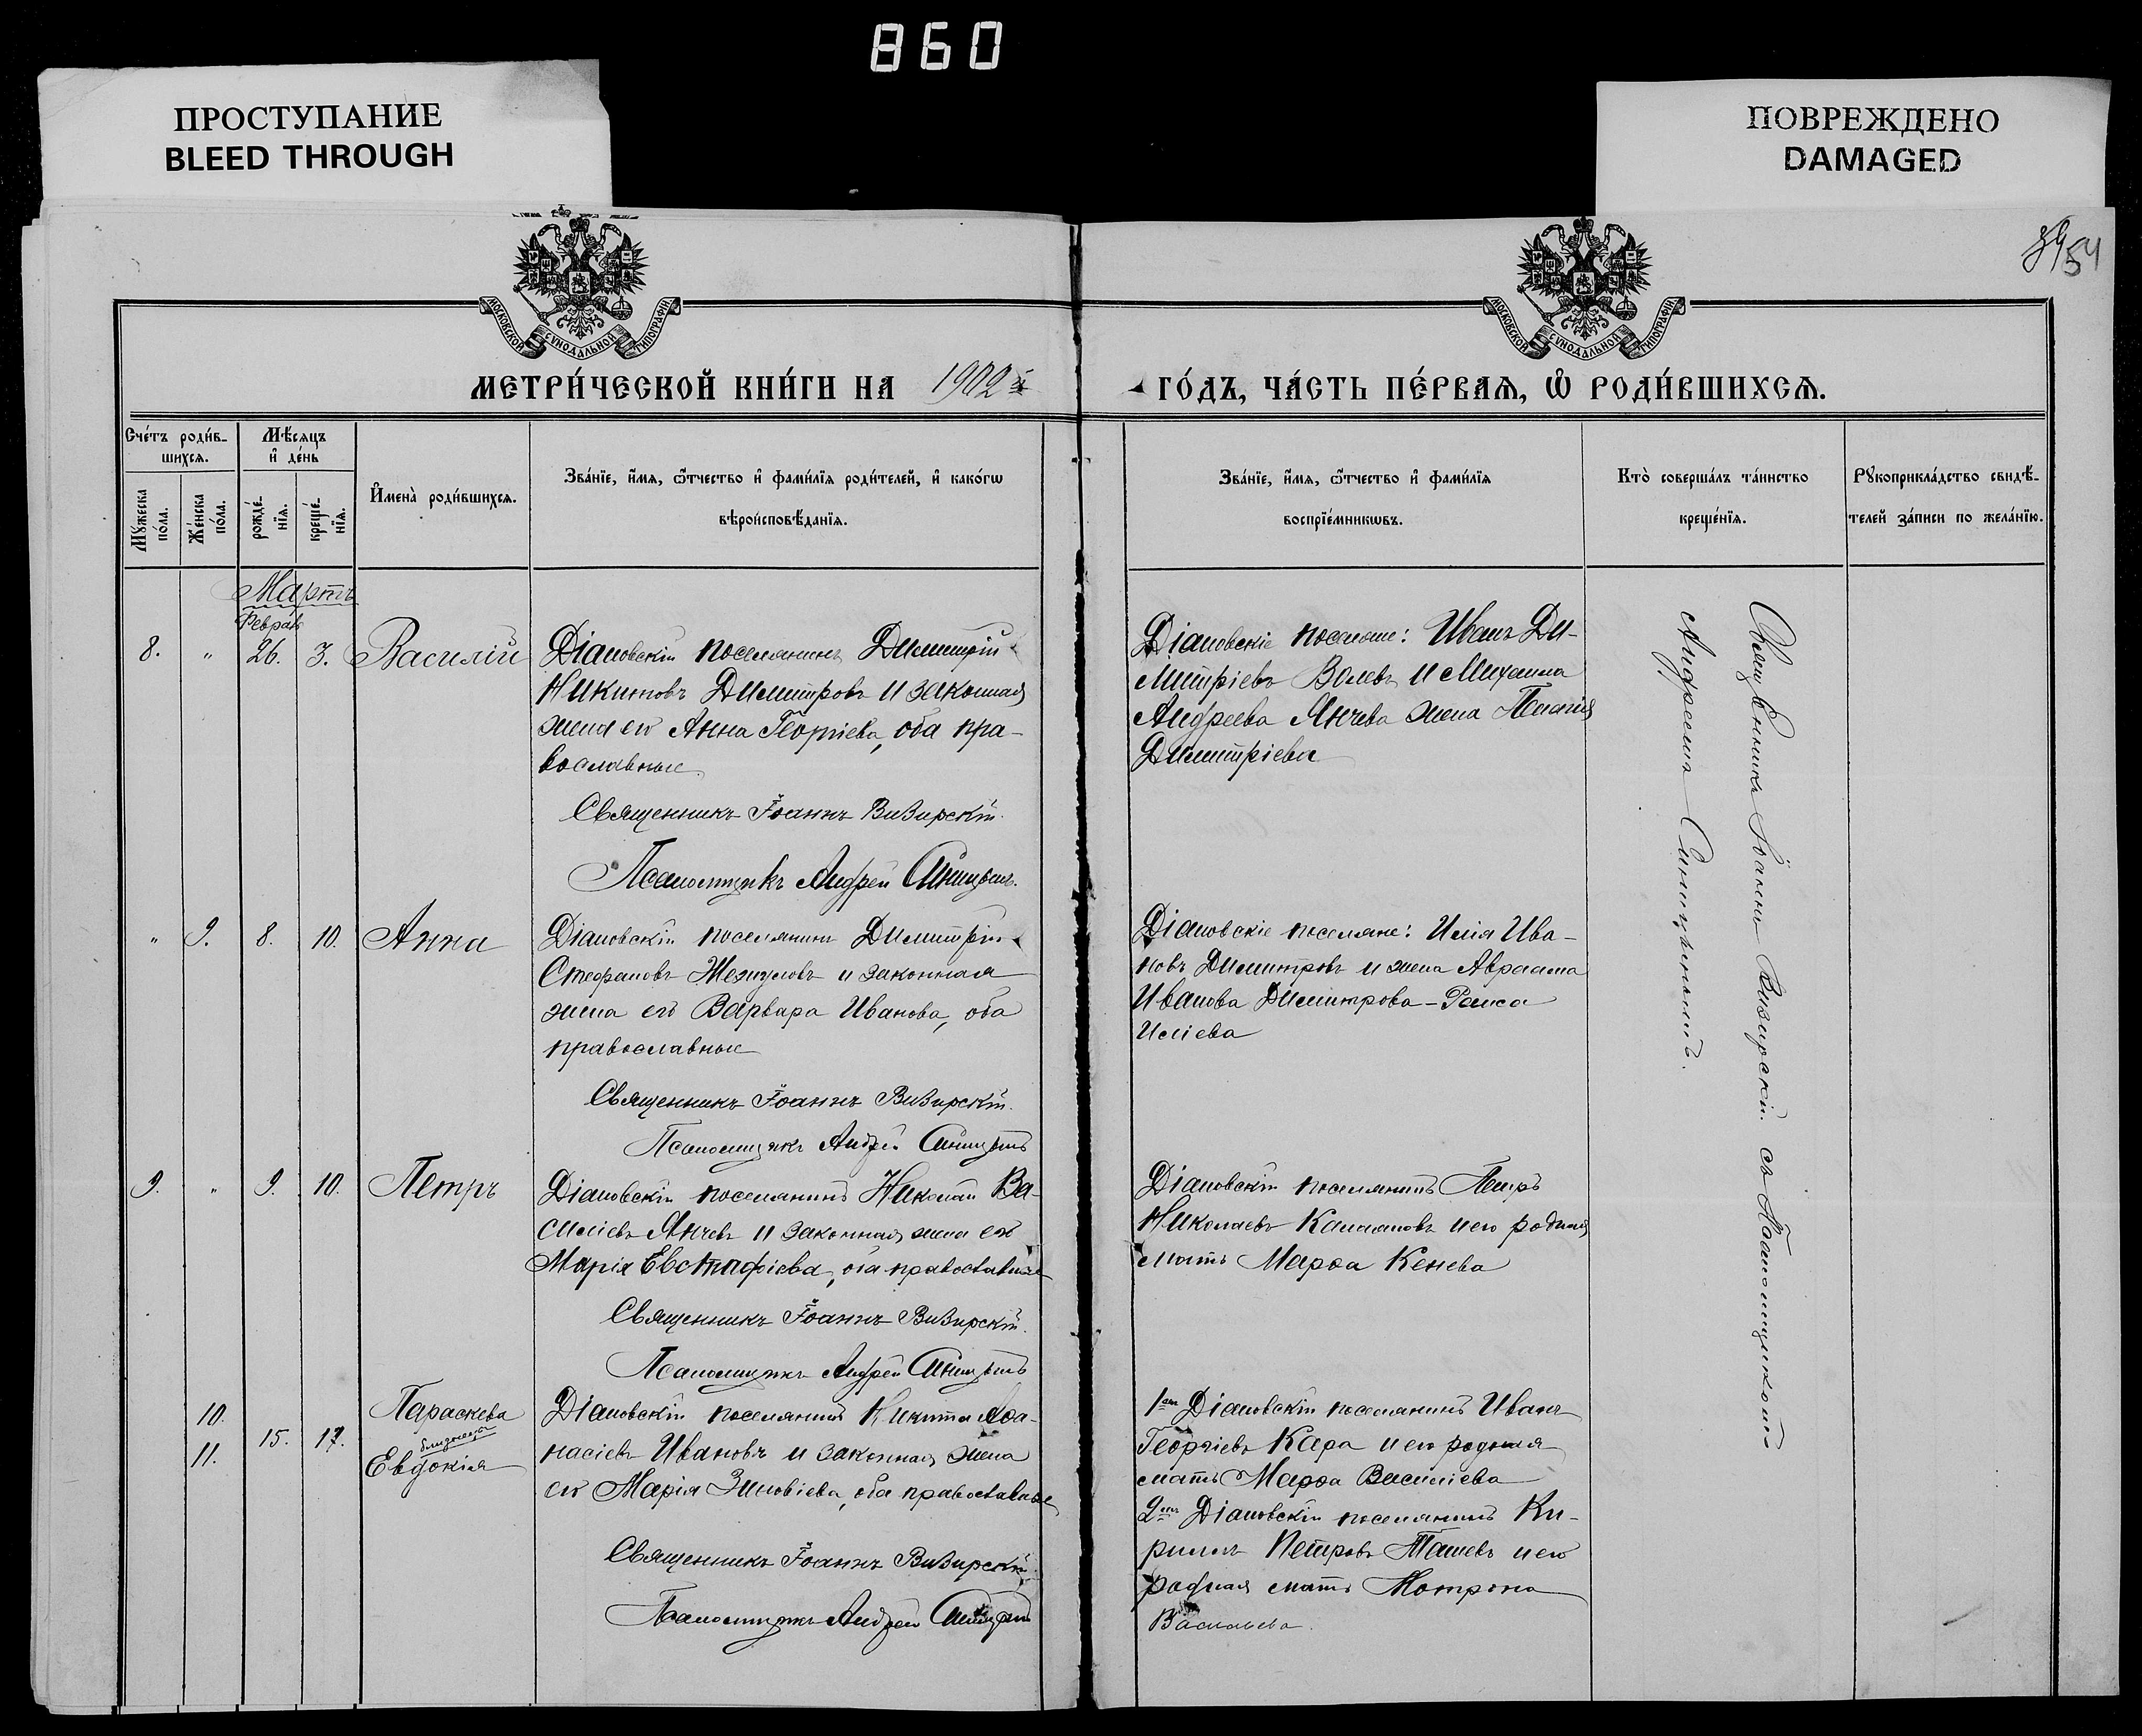 860
ПРОСТУПАНИЕ
BLEED THROUGH
ПОВРЕЖДЕНО
DAMAGED
54
МОСКОВСКОЙ СѴНОДАЛЬНОЙ ТИПОГРАФІИ
МОСКОВСКОЙ СѴНОДАЛЬНОЙ ТИПОГРАФІИ
МЕТРИ́ЧЕСКОЙ КНИ́ГИ НА 1902 й
ГО́ДЪ, ЧА́СТЬ ПЕ́РВАѦ, Ѡ҆ РОДИ́ВШИХСѦ.
Сче́тъ роди́в-
шихсѧ.
Мѣ́сѧцъ
и҆ де́нь
Мꙋ́жеска
по́ла.
Же́нска
по́ла.
рожде́-
нїѧ.
креще́-
нїѧ.
И҆мена̀ роди́вшихсѧ.
Зва́нїе, и҆́мѧ, ѻ҆́тчество и҆ фами́лїѧ роди́телей, и҆ како́гѡ
вѣроисповѣ́данїѧ.
Зва́нїе, и҆́мѧ, ѻ҆́тчество и҆ фами́лїѧ
воспрїе́мникѡвъ.
Кто̀ соверша́лъ та́инство
креще́нїѧ.
Рꙋкоприкла́дство свидѣ́-
телей за́писи по жела́нїю.
Мартъ
Феврал
8. " 26. 3. Василій
Діановскій поселянинъ Димитрій
Никитовъ Димитровъ и законная
жена его Анна Георгіева, оба пра-
вославные.
Священникъ Іоаннъ Визирскій.
Псаломщикъ Андрей Синицынъ.
Діановскіе поселяне: Иванъ Ди-
митріевъ Волевъ и Михаила
Андреева Янчева жена Пелагія
Димитріева
" 9. 8. 10. Анна
Діановскій поселянинъ Димитрій
Стефановъ и законная
жена его Варвара Иванова, оба
православные
Священникъ Іоаннъ Визирскій.
Псаломщикъ Андрей Синицынъ
Діановскіе поселяне: Илія Ива-
новъ Димитровъ и жена Авраама
Иванова Димитрова - Раиса
Иліева
9. " 9. 10. Петръ
Діановскій поселянинъ Николай Ва-
силіевъ Янчевъ и законная жена его
Марія Евстафіева, оба православные
Священникъ Іоаннъ Визирскій.
Псаломщикъ Андрей Синицынъ
Діановскій поселянинъ Петръ
Николаевъ и его родная
мать Марѳа Кенева
10. Параскева
15. 17. близнецы
11. Евдокія
Діановскій поселянинъ Никита Аѳа-
насіевъ Ивановъ и законная жена
его Марія Зиновіева, оба православные
Священникъ Іоаннъ Визирскій
Псаломщикъ Андрей Синицынъ
1-й Діановскій поселянинъ Иванъ
Георгіевъ Кара и его родная
мать Марѳа Василіева
2-й Діановскій поселянинъ Ки-
риллъ Петровъ Ташевъ и его
родная мать Мотрона
Васильева.
Священникъ Іоаннъ Визирскій съ Псаломщикомъ
Андреемъ Синицынымъ.